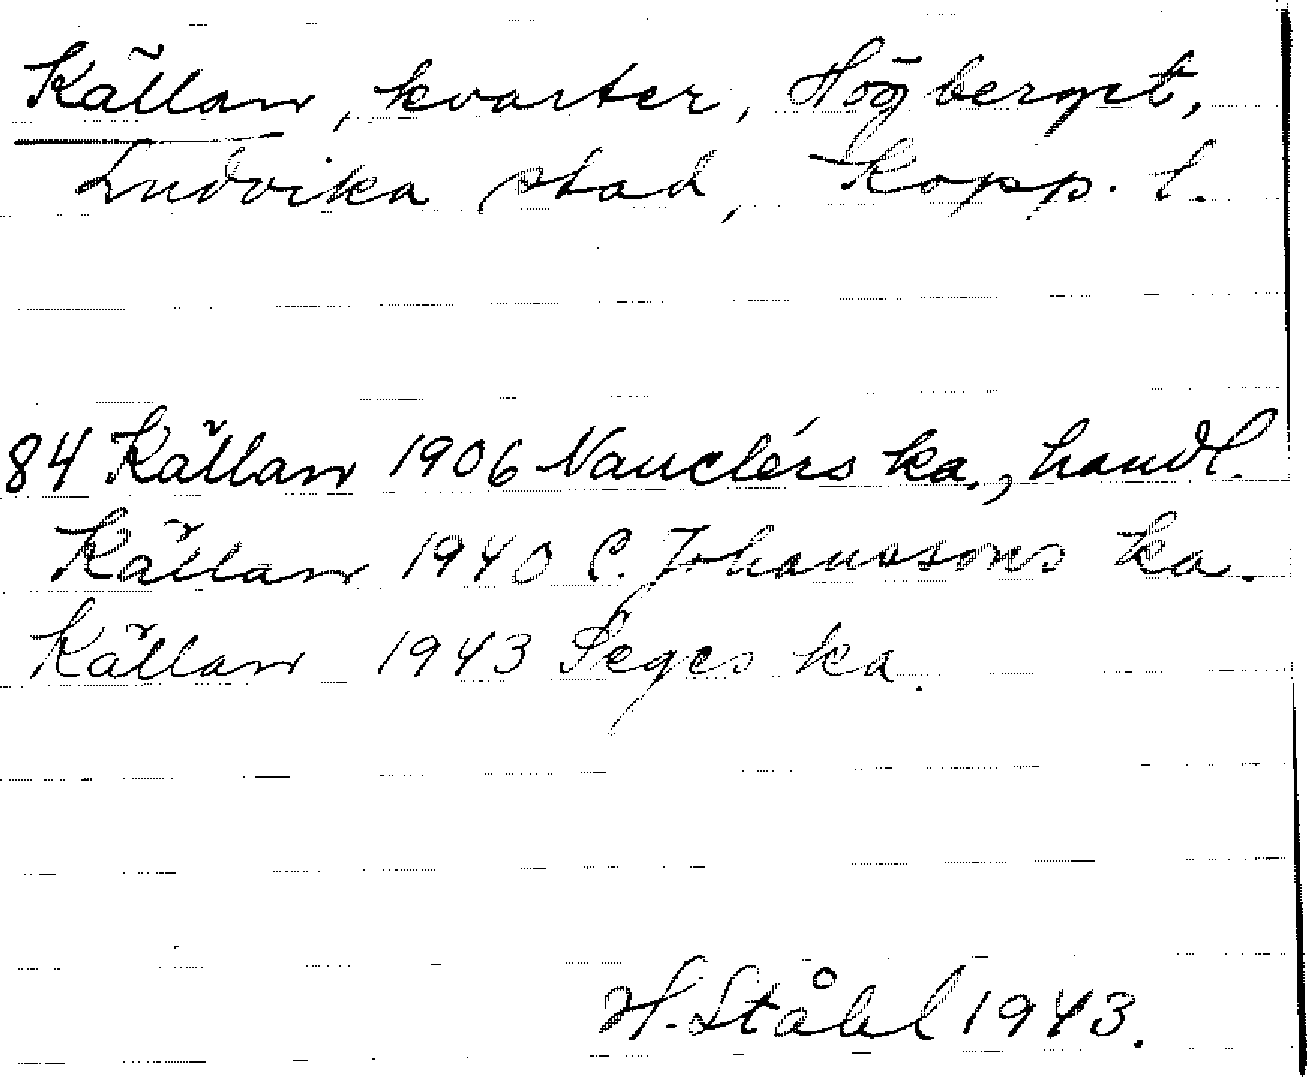 Källan, kvarter, Högberget,
Ludvika stad, Kopp. l.
84 Källan 1906 Nauclérs ka., handl.
Källan 1940 C. Johanssons ka.
Källan 1943 Seges ka.
H. Ståhl 1943.